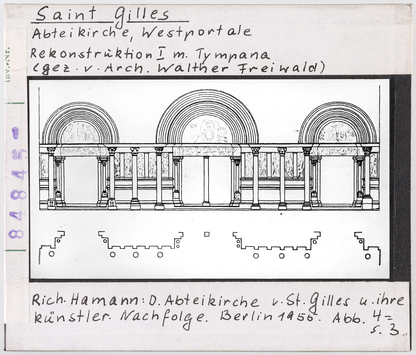 Saint Gilles
Abteikirche, Westportale
Rekonstruktion I m. Tympana
(gez. v. Arch. Walther Freiwald)
84845
Rich. Hamann: D. Abteikirche v. St. Gilles u. ihre
künstler. Nachfolge. Berlin 1956. Abb. 4=
S. 3